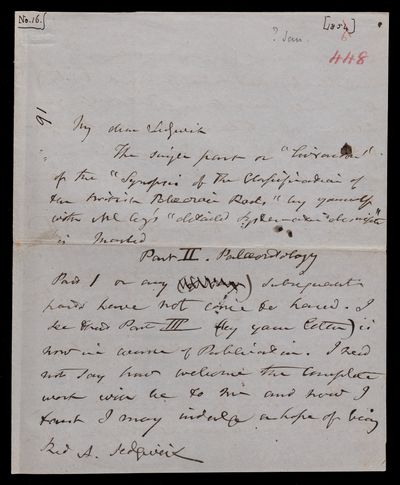 No. 16.
[1854]
6
? Jan.
448
16
My dear Sedgwick
The single part or "Livraison"
of the "Synopsis of the Classification of
the British Palæozoic Rocks" by yourself
with McCoy's "detailed systematic descript"
is marked
Part II. Palæontology
Part I or any subsequent
parts have not come to hand. I
see that Part III (by your letter) is
now in course of Publication. I need
not say how welcome the complete
work will be to me and how I
trust I may indulge a hope of being
Red A. Sedgwick